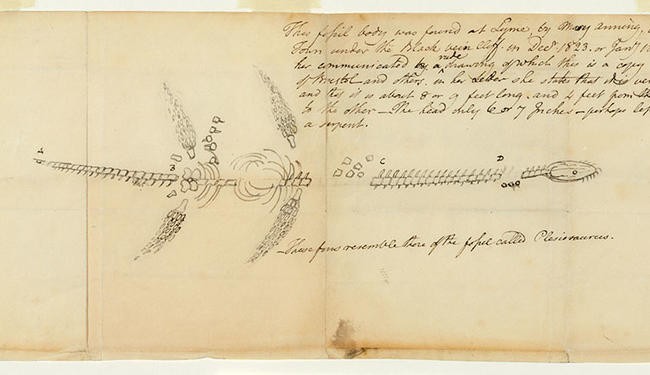 This fossil body was found at Lyme, by Mary Anning,
Town under the Black Ven Cliff, in Decr. 1823. or Jany
her communicated by a rude drawing of which this is a copy
of Bristol and others. in her Letter she states that
and this is about 8 or 9 feet long. and 4 feet from
to the other — The head only 6 or 7 Inches — perhaps
a serpent.
A B C D
— These fins resemble those of the fossil called Plesiosaurus.